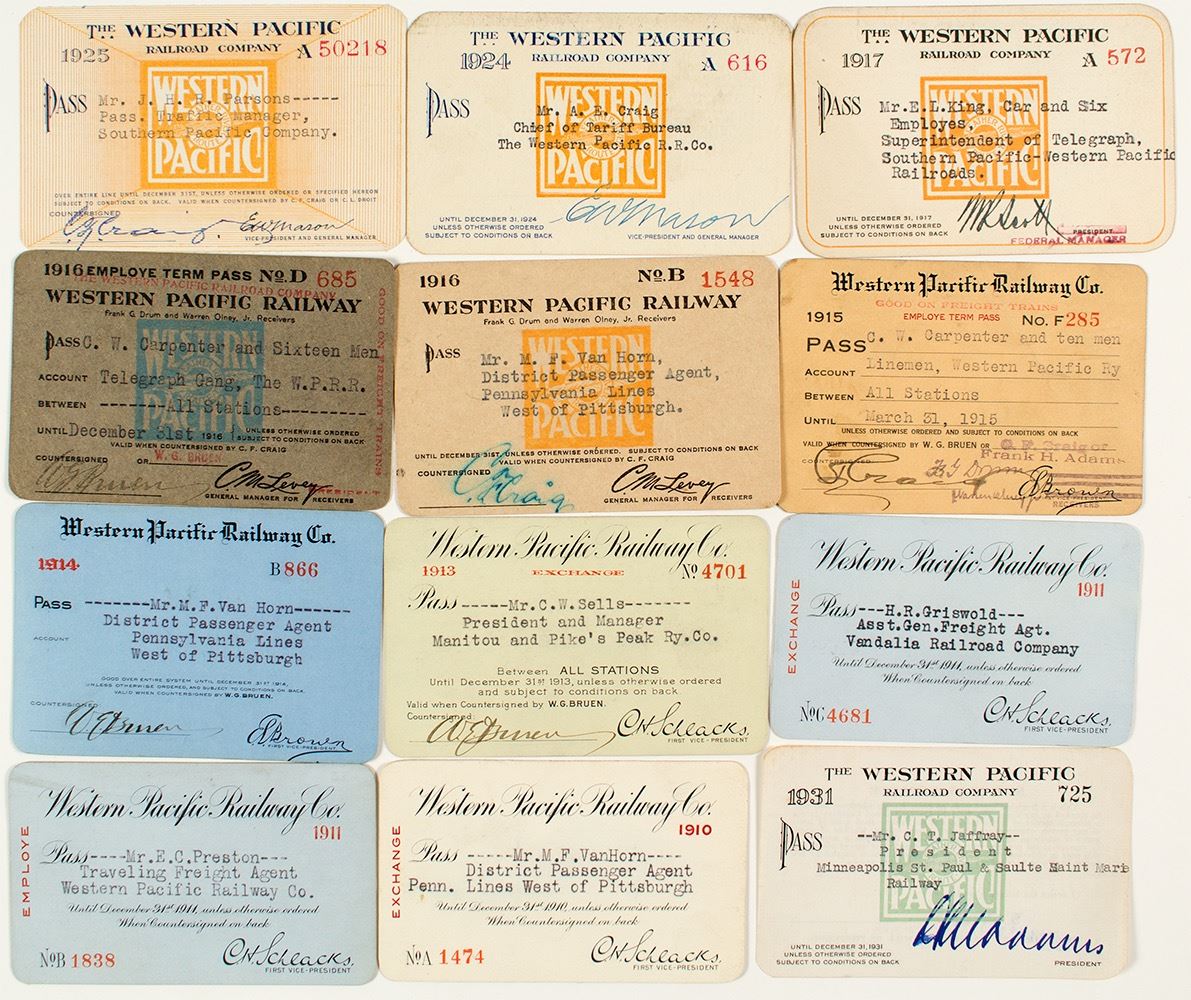 THE WESTERN PACIFIC
RAILROAD COMPANY
1925
A 50218
WESTERN PACIFIC
PASS Mr. J. H. R. Parsons-----
Pass. Traffic Manager,
Southern Pacific Company.
OVER ENTIRE LINE UNTIL DECEMBER 31ST, UNLESS OTHERWISE ORDERED OR SPECIFIED HEREON
SUBJECT TO CONDITIONS ON BACK. VALID WHEN COUNTERSIGNED BY C. F. CRAIG OR C. L. DROIT
COUNTERSIGNED
C F Craig. E W Mason
VICE-PRESIDENT AND GENERAL MANAGER
THE WESTERN PACIFIC
RAILROAD COMPANY
1924
A 616
WESTERN PACIFIC
PASS Mr. A. E. Craig
Chief of Tariff Bureau
The Western Pacific R.R.Co.
UNTIL DECEMBER 31, 1924
UNLESS OTHERWISE ORDERED
SUBJECT TO CONDITIONS ON BACK
E W Mason
VICE-PRESIDENT AND GENERAL MANAGER
THE WESTERN PACIFIC
RAILROAD COMPANY
1917
A 572
WESTERN PACIFIC
PASS Mr.E.L.King, Car and Six
Employes,
Superintendent of Telegraph,
Southern Pacific-Western Pacific
Railroads.
UNTIL DECEMBER 31, 1917
UNLESS OTHERWISE ORDERED
SUBJECT TO CONDITIONS ON BACK
W R Scott
PRESIDENT
FEDERAL MANAGER
1916 EMPLOYE TERM PASS No. D 685
THE WESTERN PACIFIC RAILROAD COMPANY
WESTERN PACIFIC RAILWAY
Frank G. Drum and Warren Olney, Jr. Receivers
WESTERN PACIFIC
PASS C. W. Carpenter and Sixteen Men
ACCOUNT Telegraph Gang, The W.P.R.R.
BETWEEN ---------All Stations-----------
UNTIL December 31st 1916 UNLESS OTHERWISE ORDERED
SUBJECT TO CONDITIONS ON BACK
VALID WHEN COUNTERSIGNED BY C. F. CRAIG
COUNTERSIGNED OR W. G. BRUEN
W G Bruen C M Levey
PRESIDENT
GENERAL MANAGER FOR RECEIVERS
GOOD ON FREIGHT TRAINS
1916 No. B 1548
WESTERN PACIFIC RAILWAY
Frank G. Drum and Warren Olney, Jr. Receivers
WESTERN PACIFIC
PASS Mr. M. F. Van Horn,
District Passenger Agent,
Pennsylvania Lines
West of Pittsburgh.
UNTIL DECEMBER 31ST, UNLESS OTHERWISE ORDERED. SUBJECT TO CONDITIONS ON BACK
VALID WHEN COUNTERSIGNED BY C. F. CRAIG
COUNTERSIGNED
C F Craig C M Levey
GENERAL MANAGER FOR RECEIVERS
Western Pacific Railway Co.
GOOD ON FREIGHT TRAINS
1915 EMPLOYE TERM PASS No. F285
PASS C. W. Carpenter and ten men
ACCOUNT Linemen, Western Pacific Ry
BETWEEN All Stations
UNTIL March 31, 1915
UNLESS OTHERWISE ORDERED AND SUBJECT TO CONDITIONS ON BACK
VALID WHEN COUNTERSIGNED BY W. G. BRUEN OR C. F. Craig or
Frank H. Adams
COUNTERSIGNED
C F Craig F G Drum
E L Brown
RECEIVERS
Western Pacific Railway Co.
1914 B866
PASS --------Mr.M.F.Van Horn-------
District Passenger Agent
ACCOUNT Pennsylvania Lines
West of Pittsburgh
GOOD OVER ENTIRE SYSTEM UNTIL DECEMBER 31ST 1914,
UNLESS OTHERWISE ORDERED, AND SUBJECT TO CONDITIONS ON BACK.
VALID WHEN COUNTERSIGNED BY W.G. BRUEN.
COUNTERSIGNED
W G Bruen E L Brown
FIRST VICE-PRESIDENT
Western Pacific Railway Co.
1913 EXCHANGE No 4701
Pass -----Mr.C.W.Sells-------
President and Manager
Manitou and Pike's Peak Ry.Co.
Between ALL STATIONS
Until December 31st 1913, unless otherwise ordered
and subject to conditions on back.
Valid when Countersigned by W.G. BRUEN.
Countersigned
W G Bruen C.H. Schlacks,
FIRST VICE-PRESIDENT
Western Pacific Railway Co.
1911
EXCHANGE
Pass---H.R.Griswold---
Asst.Gen.Freight Agt.
Vandalia Railroad Company
Until December 31st 1911, unless otherwise ordered
When Countersigned on back
No C 4681
C.H. Schlacks,
FIRST VICE-PRESIDENT
Western Pacific Railway Co.
1911
EMPLOYE
Pass----Mr.E.C.Preston---
Traveling Freight Agent
Western Pacific Railway Co.
Until December 31st 1911, unless otherwise ordered
When Countersigned on back
No B 1838
C.H. Schlacks,
FIRST VICE-PRESIDENT
Western Pacific Railway Co.
1910
EXCHANGE
Pass -----Mr.M.F.VanHorn----
District Passenger Agent
Penn. Lines West of Pittsburgh
Until December 31st 1910, unless otherwise ordered
When Countersigned on back
No A 1474
C.H. Schlacks,
FIRST VICE-PRESIDENT
THE WESTERN PACIFIC
RAILROAD COMPANY
1931 725
WESTERN PACIFIC
PASS --Mr. C. T. Jaffray--
President
Minneapolis St. Paul & Saulte Saint Marie
Railway
UNTIL DECEMBER 31, 1931
UNLESS OTHERWISE ORDERED
SUBJECT TO CONDITIONS ON BACK
PRESIDENT